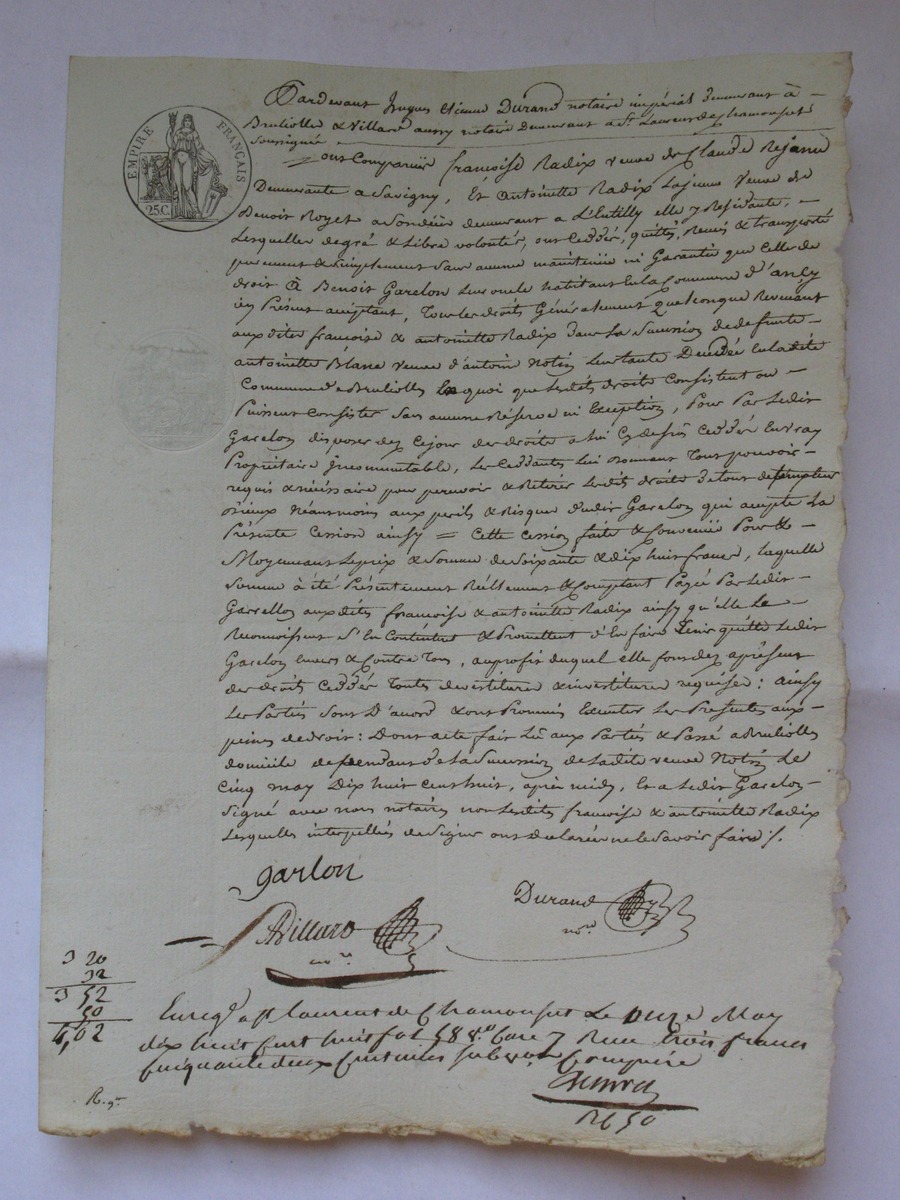 EMPIRE FRANÇAIS
25C.
Pardevant hugues etienne Durand notaire impérial demeurant à
Brullolle & Villard aussy notaire demeurant a St Laurens de chamousset
Soussignés
ont Comparües francoise Radix veuve de Claude
Demeurante a Savigny, Et antoinette Radix Lajeune veuve de
Benoit Royet demeurant a L'entilly elle y Residante,
Lesquelles degré & Libre volonté, ont Ceddés, quittés, Remis & transporté
purement & simplement Sans aucune maintenüe ni Garantie que Celle de
droit à Benoit Garelon Leur oncle habitant en la Commune d'ancy
icy Présent acceptant, Tous les droits Généralement quelconque Revenant
aux dites francoise & antoinette Radix dans La Succession de defunte
antoinette Blanc veuve d'antoine Notin Leur tante Deceddée en ladite
Commune de Brullolles En quoi que Lesdits droits Consistent ou
Puissent Consister Sans aucune Réserve ni Exception, Pour Par Ledit
Garelon disposer dez Cejour des droits a lui Cydessus Ceddés En vray
Propriétaire Incommutable, Les Ceddantes Lui donnant Tout pouvoir
requis & nécessaire pour percevoir & Retirer Lesdits droits detous detempteur
Neanmoins aux perils & Risque dudit Garelon qui accepte La
Présente Cession ainsy = Cette cession faite & Convenüe Pour &
Moyennant Leprix & Somme de Soixante & dix huit francs, laquelle
Somme à été Présentement Réellement & Comptant Payée Par Ledit
Garrellon aux dites francoise & antoinette Radix ainsy qu'elle Le
Reconnoissent S'en Contentent & Promettent d'en faire Tenir quitte Ledit
Garelon envers & Contre Tous, au profit duquel elle fons dez aprésent
des droits Ceddés Toutes devestitures & investitures requises: ainsy
Les Parties Sont D'acord & ont Promis Executer Les Presentes aux
peines de droit: Dont acte fait Lû aux Parties & Passé a Brullolles
domicile dependant de La Succession de ladite veuve Notin Le
Cinq may Dix huit cent huit, après midy, Et a Ledit Garelon
Signé avec nous notaires non Lesdites francoise & antoinette Radix
Lesquelles interpellées de Signer ont Declarées ne le Savoir faire /.
garlon
Durand
nore
Villard
nore
3 20
32
3 52
50
4,02
Enregé a St laurent de Chamousset Le onze May
dix huit cent huit fol 58 vo Case 7 Reçu trois francs
Cinquante deux Centimes Subvon Comprise
R 6 50